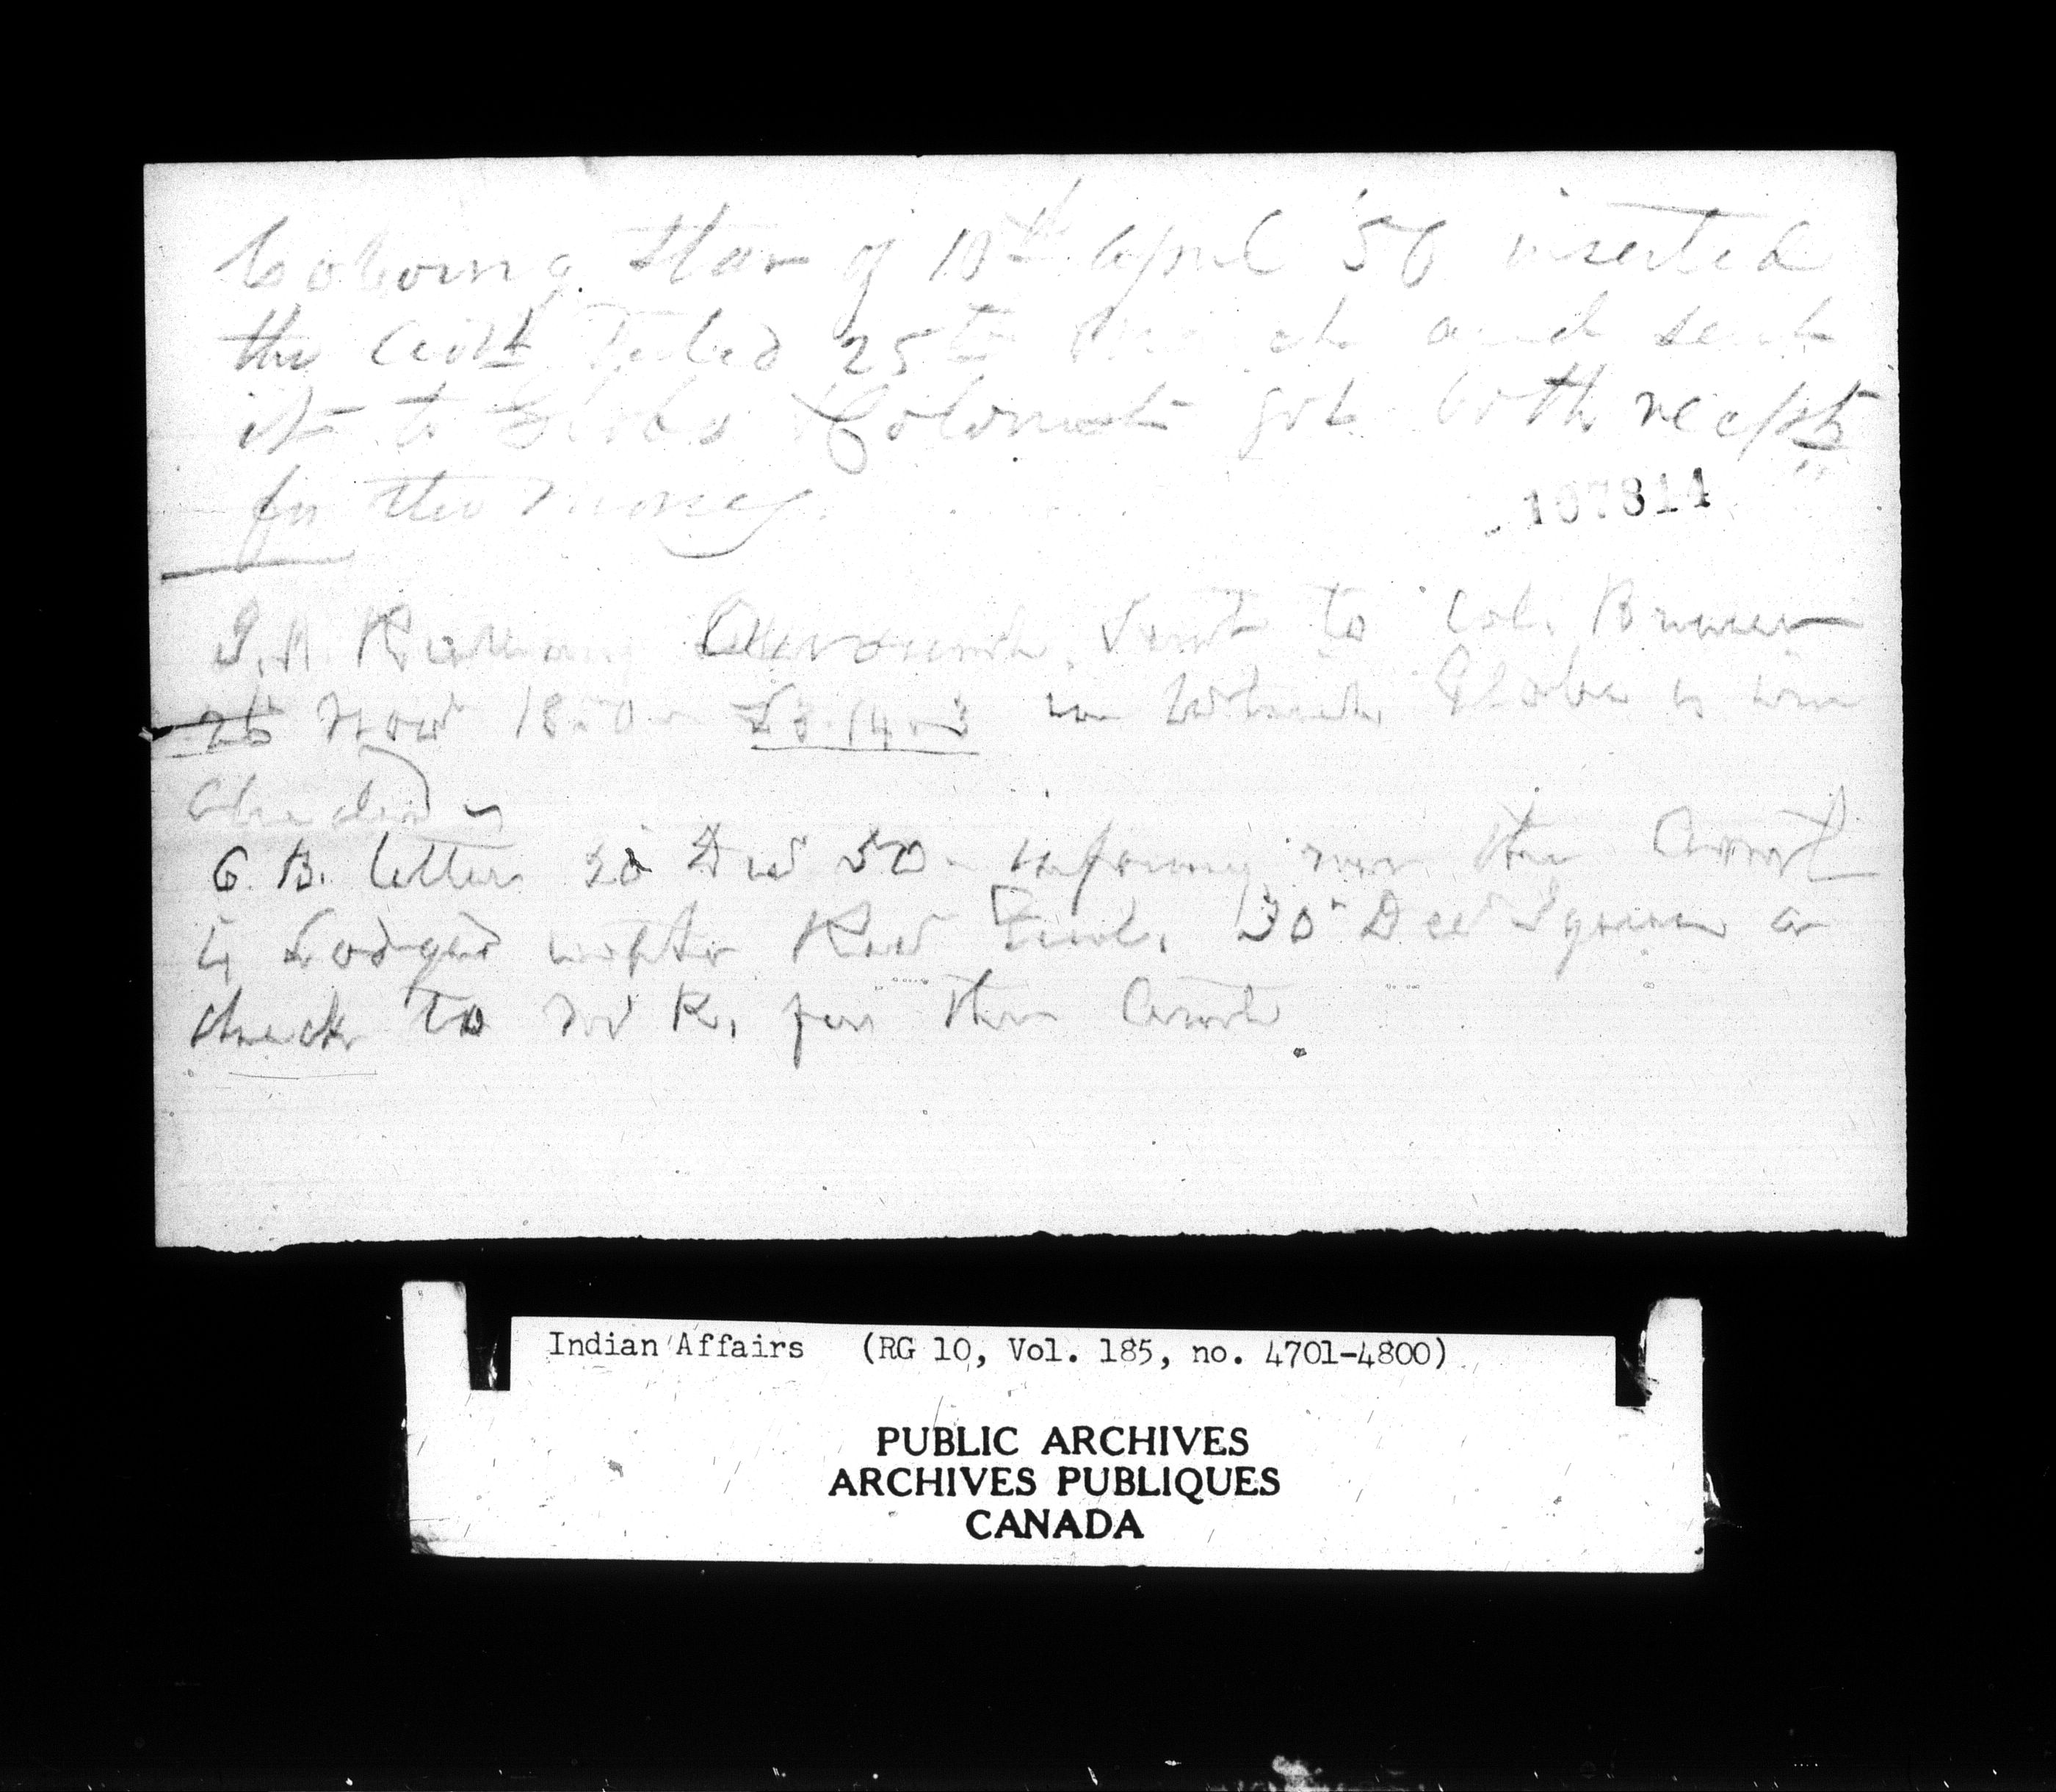 Cobourg Star of 10th April '50 inserted
the Advt dated 25th March and sent
it to Globe & Colonist got both recpts
for the money
107814
Account Sent to Col. Bruce
26 Novr 1850 £3.14.3 in which Globe is in
cluded
G. B. letter 20 Decr 50 informing me the Accot
is Lodged with 30th Decr I gave a
check to Mr R. for the Accot
Indian Affairs (RG 10, Vol. 185, no. 4701-4800)
PUBLIC ARCHIVES
ARCHIVES PUBLIQUES
CANADA